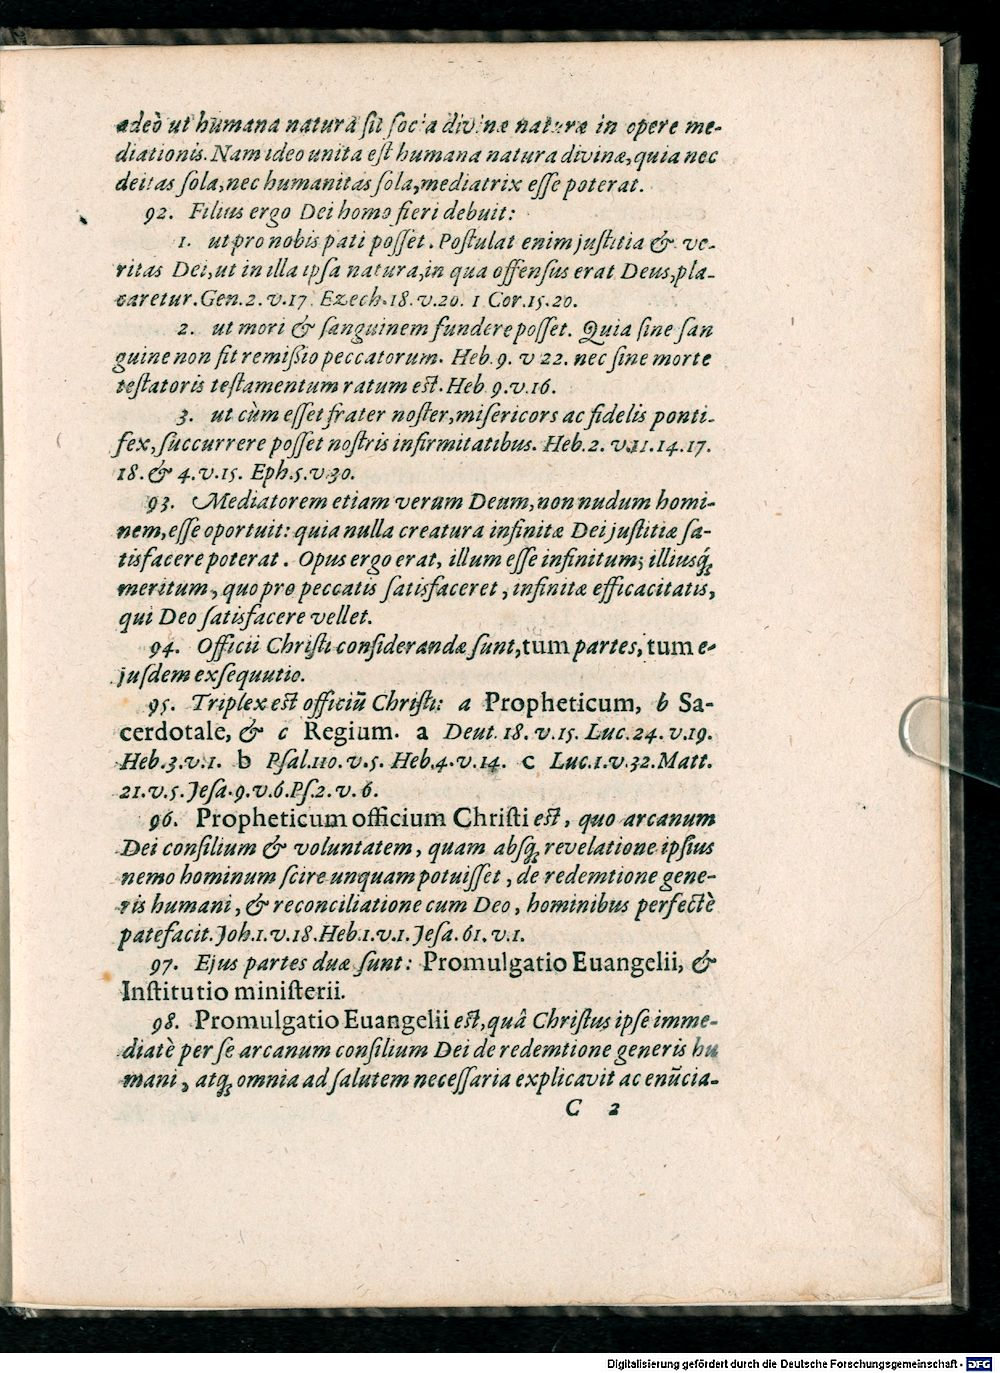 adeò ut humana natura sit socia divinæ naturæ in opere me-
diationis. Nam ideo unita est humana natura divinæ, quia nec
deitas sola, nec humanitas sola, mediatrix esse poterat.
92. Filius ergo Dei homo fieri debuit:
1. ut pro nobis pati posset. Postulat enim justitia & ve-
ritas Dei, ut in illa ipsa natura, in qua offensus erat Deus, pla-
caretur. Gen. 2. v. 17. Ezech. 18. v. 20. 1 Cor. 15. 20.
2. ut mori & sanguinem fundere posset. Quia sine san
guine non fit remißio peccatorum. Heb. 9. v 22. nec sine morte
testatoris testamentum ratum est. Heb. 9. v. 16.
3. ut cùm esset frater noster, misericors ac fidelis ponti-
fex, succurrere posset nostris infirmitatibus. Heb. 2. v. 11. 14. 17.
18. & 4. v. 15. Eph. 5. v. 30.
93. Mediatorem etiam verum Deum, non nudum homi-
nem, esse oportuit: quia nulla creatura infinitæ Dei justitiæ sa-
tisfacere poterat. Opus ergo erat, illum esse infinitum; illiusq́;
meritum, quo pro peccatis satisfaceret, infinitæ efficacitatis,
qui Deo satisfacere vellet.
94. Officii Christi considerandæ sunt, tum partes, tum e-
jusdem exsequutio.
95. Triplex est officiũ Christi: a Propheticum, b Sa-
cerdotale, & c Regium. a Deut. 18. v. 15. Luc. 24. v. 19.
Heb. 3. v. 1. b Psal. 110. v. 5. Heb. 4. v. 14. c Luc. 1. v. 32. Matt.
21. v. 5. Jesa. 9. v. 6. Ps. 2. v. 6.
96. Propheticum officium Christi est, quo arcanum
Dei consilium & voluntatem, quam absq; revelatione ipsius
nemo hominum scire unquam potuisset, de redemtione gene-
ris humani, & reconciliatione cum Deo, hominibus perfectè
patefacit. Joh. 1. v. 18. Heb. 1. v. 1. Jesa. 61. v. 1.
97. Ejus partes duæ sunt: Promulgatio Euangelii, &
Institutio ministerii.
98. Promulgatio Euangelii est, quâ Christus ipse imme-
diatè per se arcanum consilium Dei de redemtione generis hu
mani, atq; omnia ad salutem necessaria explicavit ac enũcia-
C 2
Digitalisierung gefördert durch die Deutsche Forschungsgemeinschaft - DFG